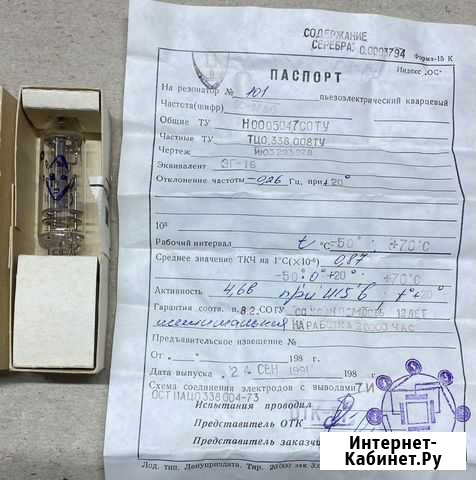 СОДЕРЖАНИЕ
СЕРЕБРА: 0,0003794
Форма-15 К
Индекс „ОС"
ПАСПОРТ
На резонатор № 101 пьезоэлектрический кварцевый
Частота(шифр)
Общие ТУ Н0005047СОТУ
Частные ТУ ТЦ0.338.008ТУ
Чертеж
Эквивалент ЭГ-16
Отклонение частоты -0,26 Гц, при +20°
10⁶
Рабочий интервал t °С -50° +70°С
Среднее значение ТКЧ на 1°С(×10⁻⁶) 0,87
-50° 0° +20° +70°С
Активность 4,6в при 115 в t°+20°
Гарантия соотв. п 8.2. СОТУ 12 ЛЕТ
минимальная НАРАБОТКА ЧАС
Предъявительское извещение №
От « » 198 г.
Дата выпуска „24 СЕН 1991" 198 г.
Схема соединения электродов с выводами
ОСТ 11АЦ0.338.004-73
Испытания проводил
Представитель ОТК
Представитель заказчи
Лод. тип. Ленуприздата. Тир. 20 000 зак
Интернет-
Кабинет.Ру